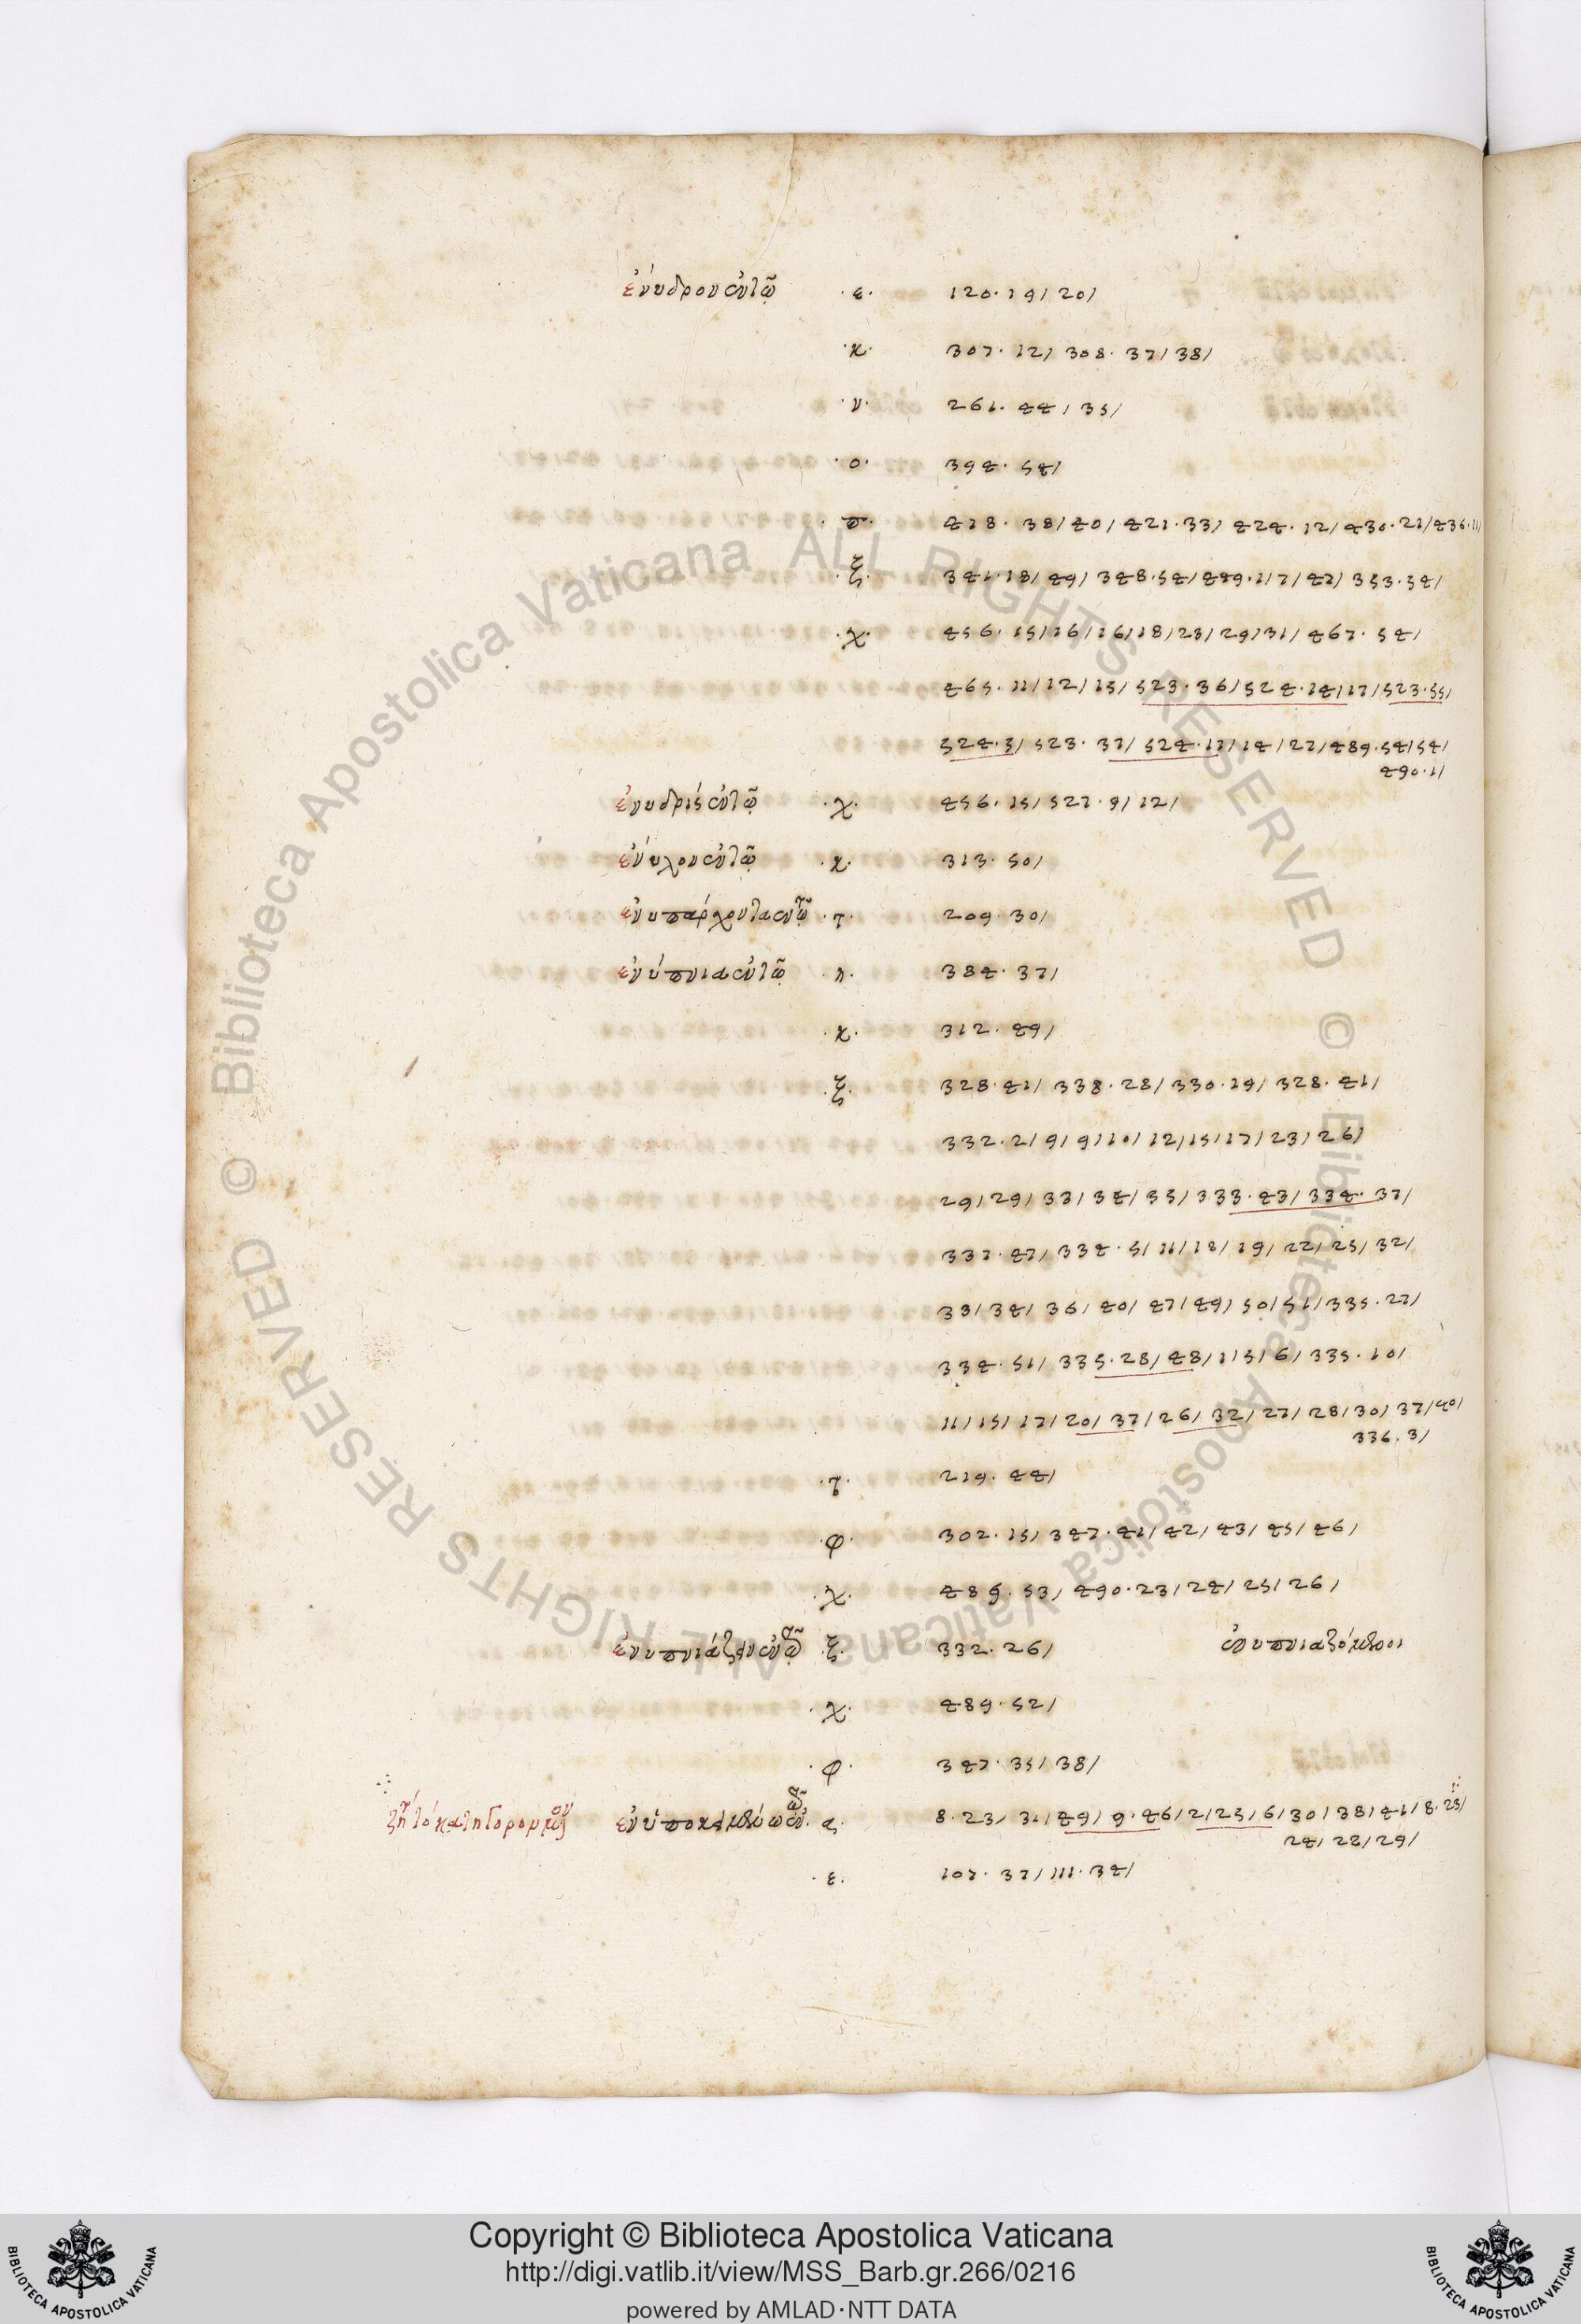 ἐνυδρον ἐν τῷ · ε · 120 · 19 / 20 /
· κ · 307 · 12 / 308 · 37 / 38 /
· ν · 261 · 44 / 35 /
· ο · 394 · 54 /
· π · 418 · 38 / 40 / 421 · 33 / 424 · 12 / 430 · 21 / 436 · 11 /
· ξ · 341 · 18 / 49 / 348 · 54 / 353 · 54 /
· χ · 456 · 15 / 16 / 16 / 18 / 23 / 29 / 31 / 467 · 54 /
465 · 11 / 12 / 15 / 523 · 36 / 524 · 14 / 17 / 523 · 55 /
524 · 5 / 523 · 37 / 524 · 17 / 14 / 27 / 489 · 54 / 54 /
490 · 1 /
ἐνυδρίς ἐν τῷ · χ · 456 · 15 / 527 · 9 / 12 /
ἐνυλον ἐν τῷ · κ · 313 · 50 /
ἐνυπάρχοντα ἐν τῷ · τ · 209 · 30 /
ἐνύπνια ἐν τῷ · η · 384 · 37 /
· κ · 312 · 49 /
· ξ · 328 · 41 / 338 · 28 / 330 · 19 / 328 · 41 /
332 · 2 / 9 / 9 / 10 / 12 / 15 / 17 / 23 / 26 /
29 / 29 / 33 / 34 / 35 / 333 · 43 / 334 · 37 /
337 · 47 / 334 · 5 / 11 / 18 / 19 / 22 / 25 / 32 /
33 / 34 / 36 / 40 / 47 / 49 / 50 / 51 / 335 · 27 /
334 · 51 / 335 · 28 / 48 / 1 / 5 / 6 / 335 · 10 /
11 / 15 / 17 / 20 / 37 / 26 / 32 / 27 / 28 / 30 / 37 / 40 /
336 · 3 /
· τ · 219 · 44 /
· φ · 302 · 15 / 347 · 41 / 42 / 43 / 45 / 46 /
· χ · 489 · 53 / 490 · 23 / 24 / 25 / 26 /
ἐνυπνιάζειν ἐν τῷ · ξ · 332 · 26 / ἐνυπνιαζόμενοι
· χ · 489 · 52 /
· φ · 347 · 35 / 38 /
ἐν ὑποκειμένῳ · α · 8 · 23 / 31 / 49 / 9 · 46 / 2 / 25 / 6 / 30 / 38 / 41 / 8 · 23 /
24 / 28 / 29 /
· ε · 107 · 37 / 111 · 34 /
Copyright © Biblioteca Apostolica Vaticana
http://digi.vatlib.it/view/MSS_Barb.gr.266/0216
powered by AMLAD·NTT DATA
© Biblioteca Apostolica Vaticana ALL RIGHTS RESERVED
© Biblioteca Apostolica Vaticana ALL RIGHTS RESERVED
BIBLIOTECA APOSTOLICA VATICANA
BIBLIOTECA APOSTOLICA VATICANA